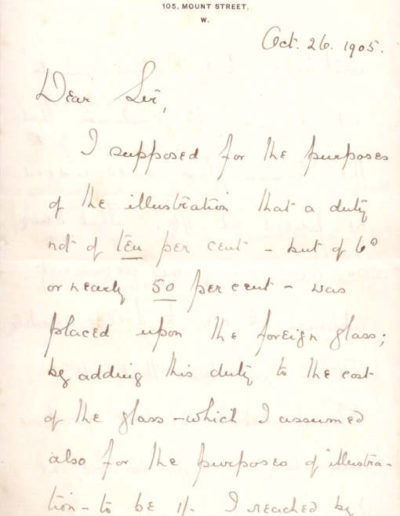 105, MOUNT STREET.
W.
Oct. 26. 1905.
Dear Sir,
I supposed for the purposes
of the illustration that a duty
not of ten per cent - but of 6ᴰ
or nearly 50 per cent - was
placed upon the foreign glass;
by adding this duty to the cost
of the glass - which I assumed
also for the purposes of illustra-
tion - to be 1/- I reached by